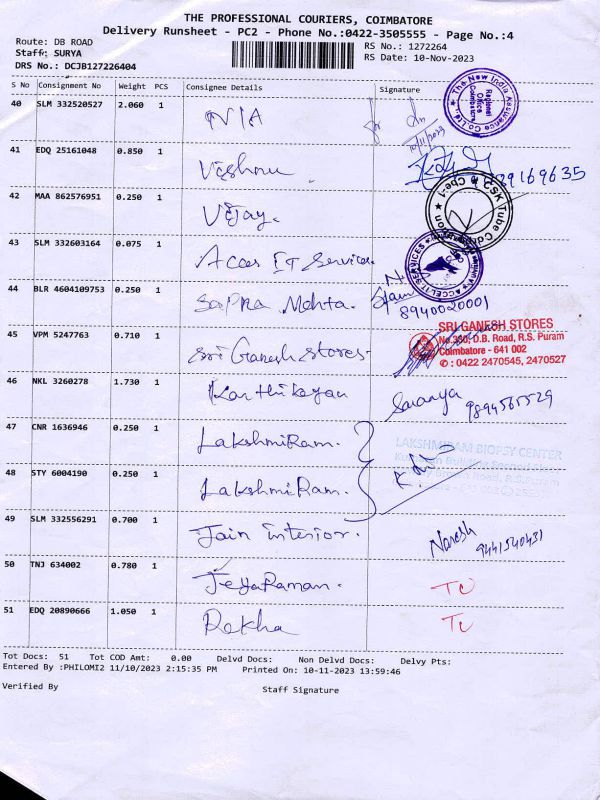 THE PROFESSIONAL COURIERS, COIMBATORE
Delivery Runsheet - PC2 - Phone No.:0422-3505555 - Page No.:4
Route: DB ROAD
Staff: SURYA
DRS No.: DCJB127226404
RS No.: 1272264
RS Date: 10-Nov-2023
S No Consignment No Weight PCS Consignee Details Signature
40 SLM 332520527 2.060 1 N/A
The New India Assurance Co Ltd. Regional Office Coimbatore
10/11/2023
41 EDQ 25161048 0.850 1 Vishnu
42 MAA 862576951 0.250 1 Vijay.
43 SLM 332603164 0.075 1 Acces IT Services.
44 BLR 4604109753 0.250 1 Sapna Mehta. 8940020001
45 VPM 5247763 0.710 1 Sri Ganesh Stores-
SRI GANESH STORES
No.330, D.B. Road, R.S. Puram
Coimbatore - 641 002
✆ : 0422 2470545, 2470527
46 NKL 3260278 1.730 1 Karthikeyan Saranya 9894565529
47 CNR 1636946 0.250 1 LakshmiRam.
LAKSHMIRAM BIOPSY CENTER
48 STY 6004190 0.250 1 LakshmiRam.
49 SLM 332556291 0.700 1 Jain interior. Naresh 9441540431
50 TNJ 634002 0.780 1 JeyaRaman.
51 EDQ 20890666 1.050 1 Rekha
Tot Docs: 51 Tot COD Amt: 0.00 Delvd Docs: Non Delvd Docs: Delvy Pts:
Entered By :PHILOMI2 11/10/2023 2:15:35 PM Printed On: 10-11-2023 13:59:46
Verified By Staff Signature